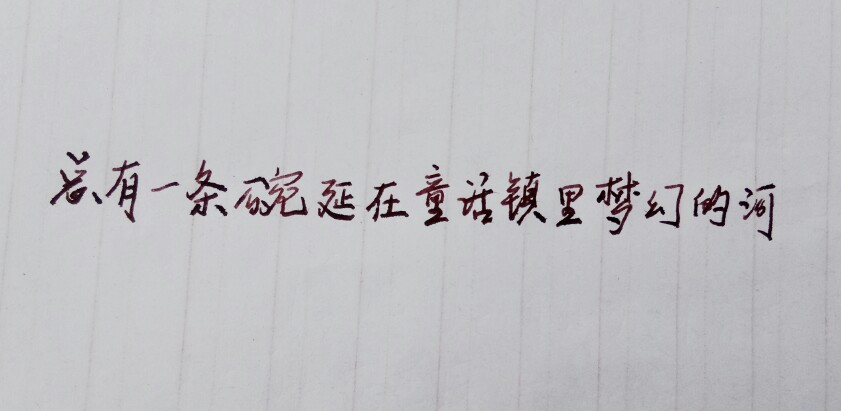 总有一条碗延在童话镇里梦幻的河